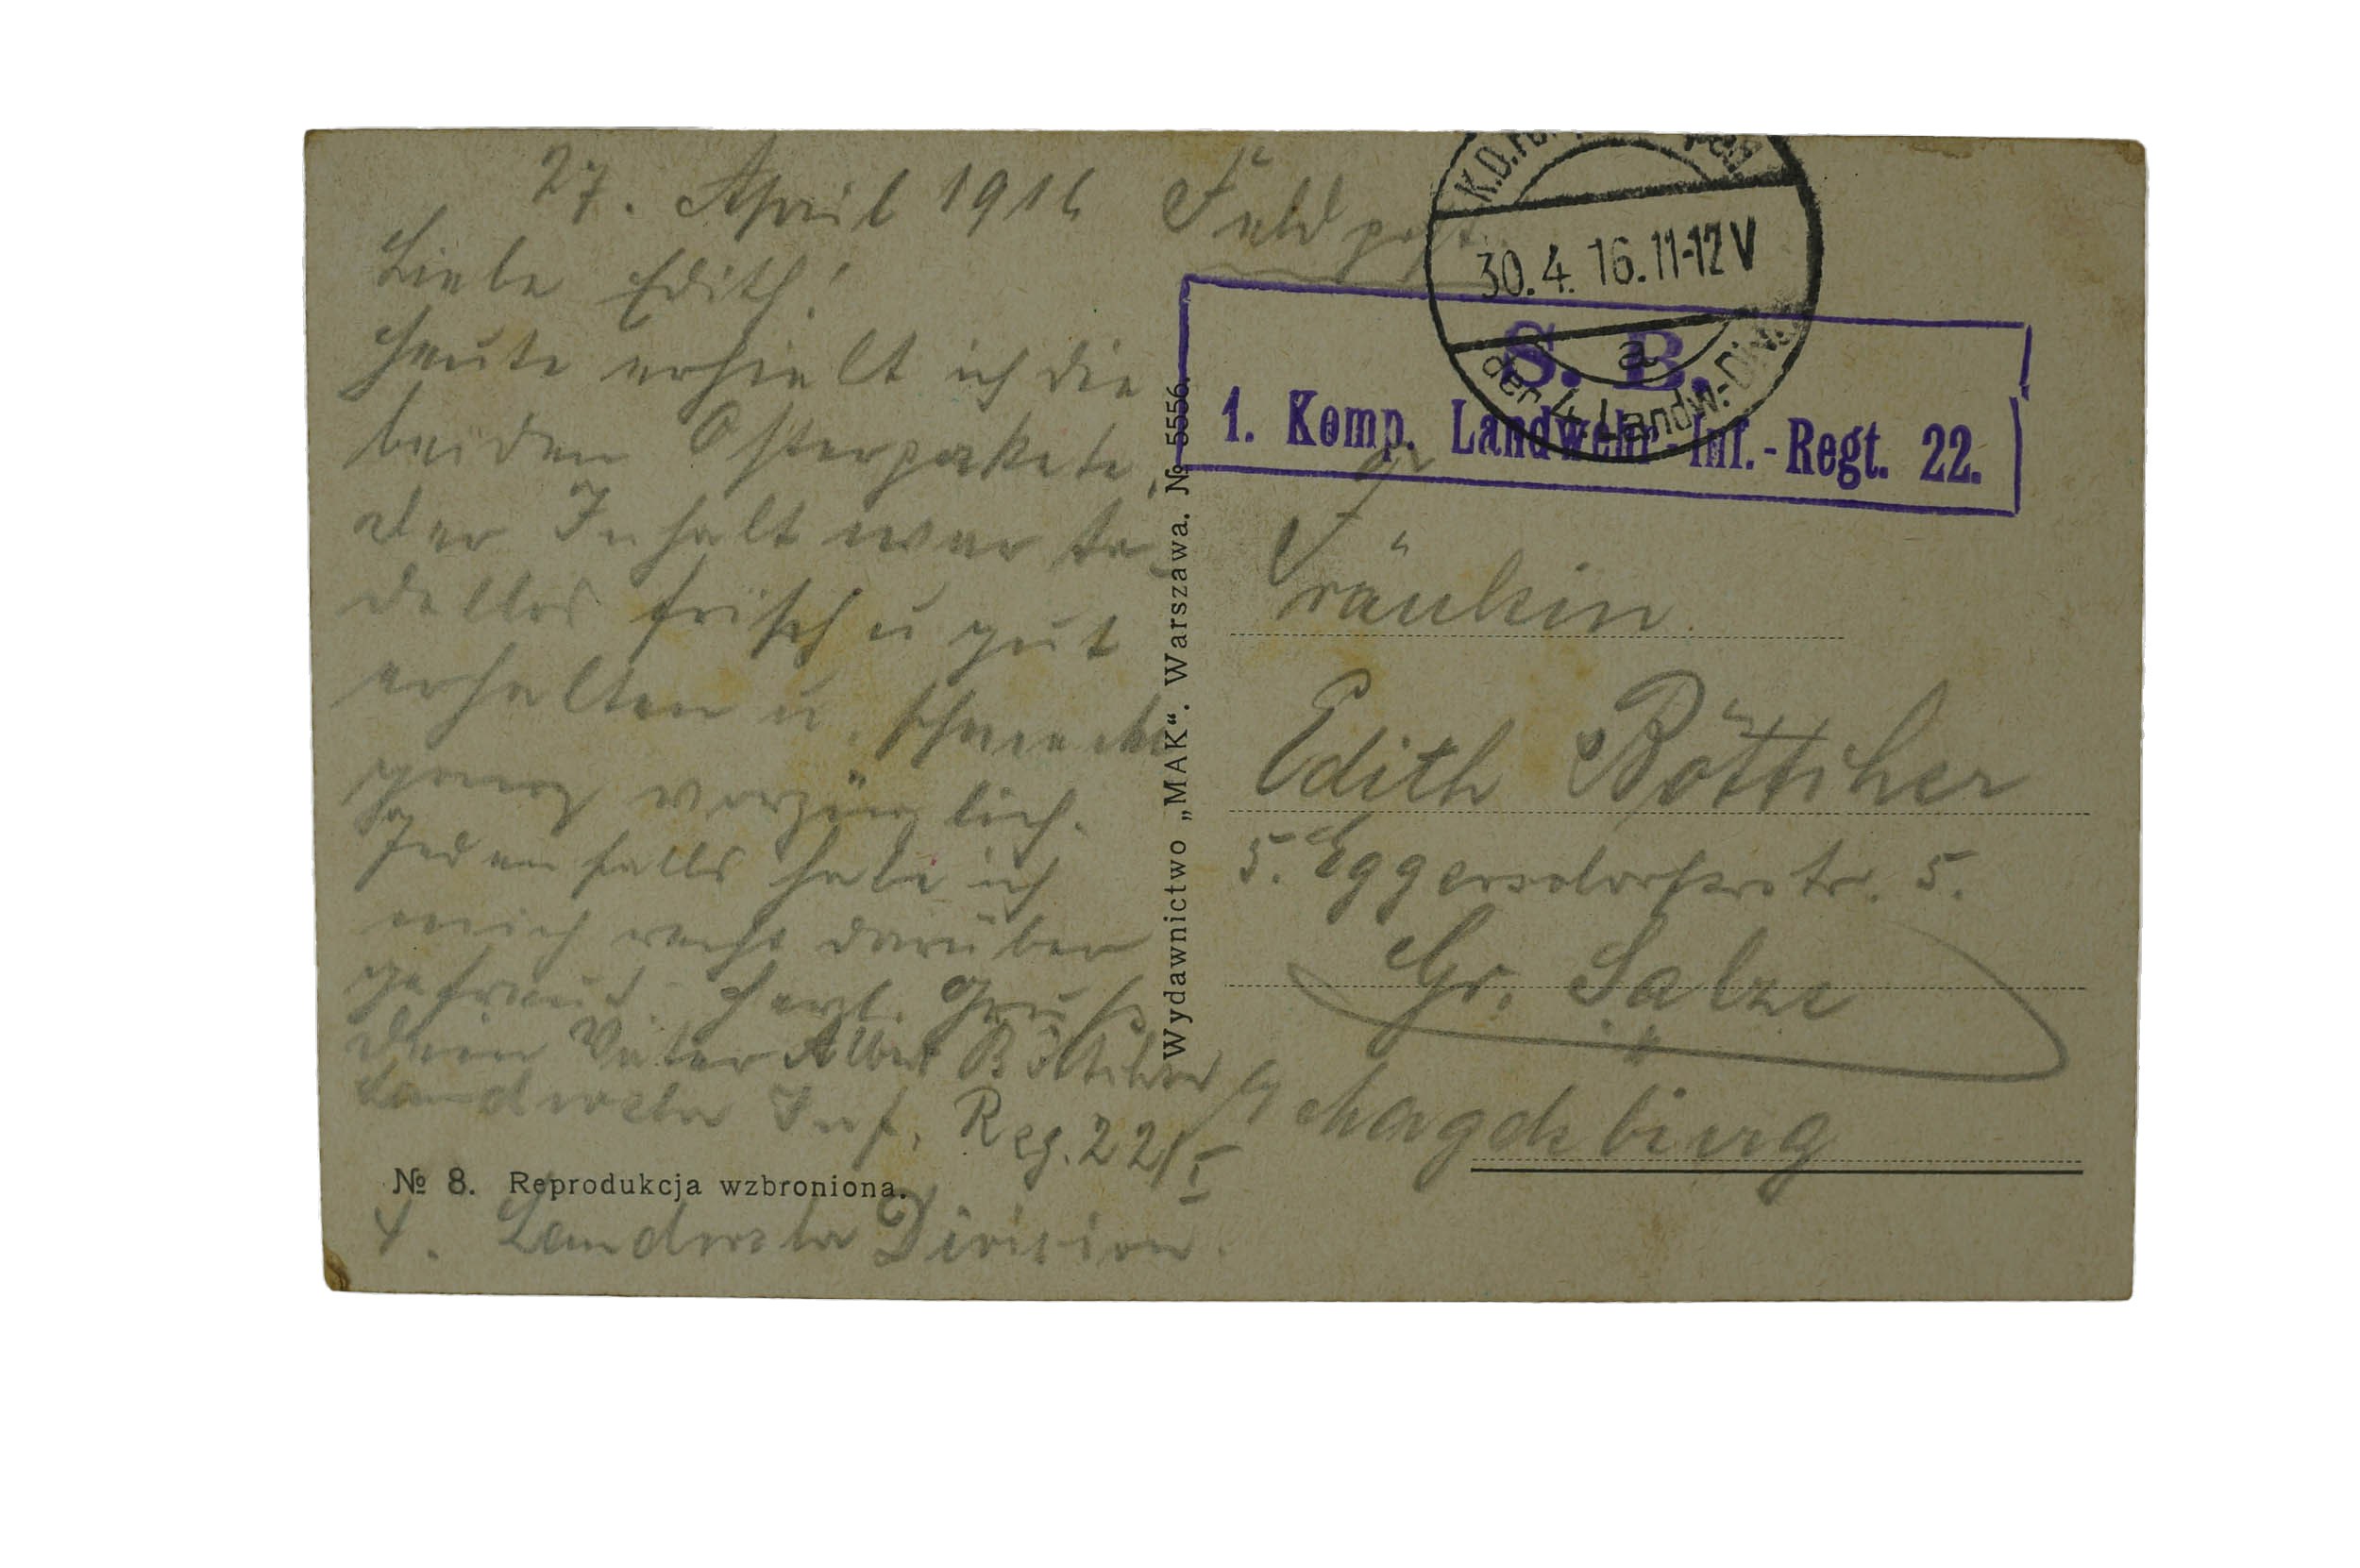 27. April 1916
Liebe Edith!
Heute erhielt ich die
beiden Osterpakete,
der Inhalt war ta-
dellos frisch u gut
erhalten u. schmeckt
ganz vorzüglich.
Jedenfalls habe ich
mich recht darüber
gefreut. Herzl. Gruß
Dein Vater Albert Böttcher
Landwehr Inf. Reg. 22/I
№ 8. Reprodukcja wzbroniona.
4. Landwehr Division.
Wydawnictwo „MAK“. Warszawa. № 5556.
Feldpost
K.D.
30.4.16.11-12V
a
der 4. Landw.-Div.
S. B.
1. Komp. Landwehr-Inf.-Regt. 22.
An
Fräulein
Edith Böttcher
5. Eggersdorferstr. 5.
Gr. Salze
Magdeburg